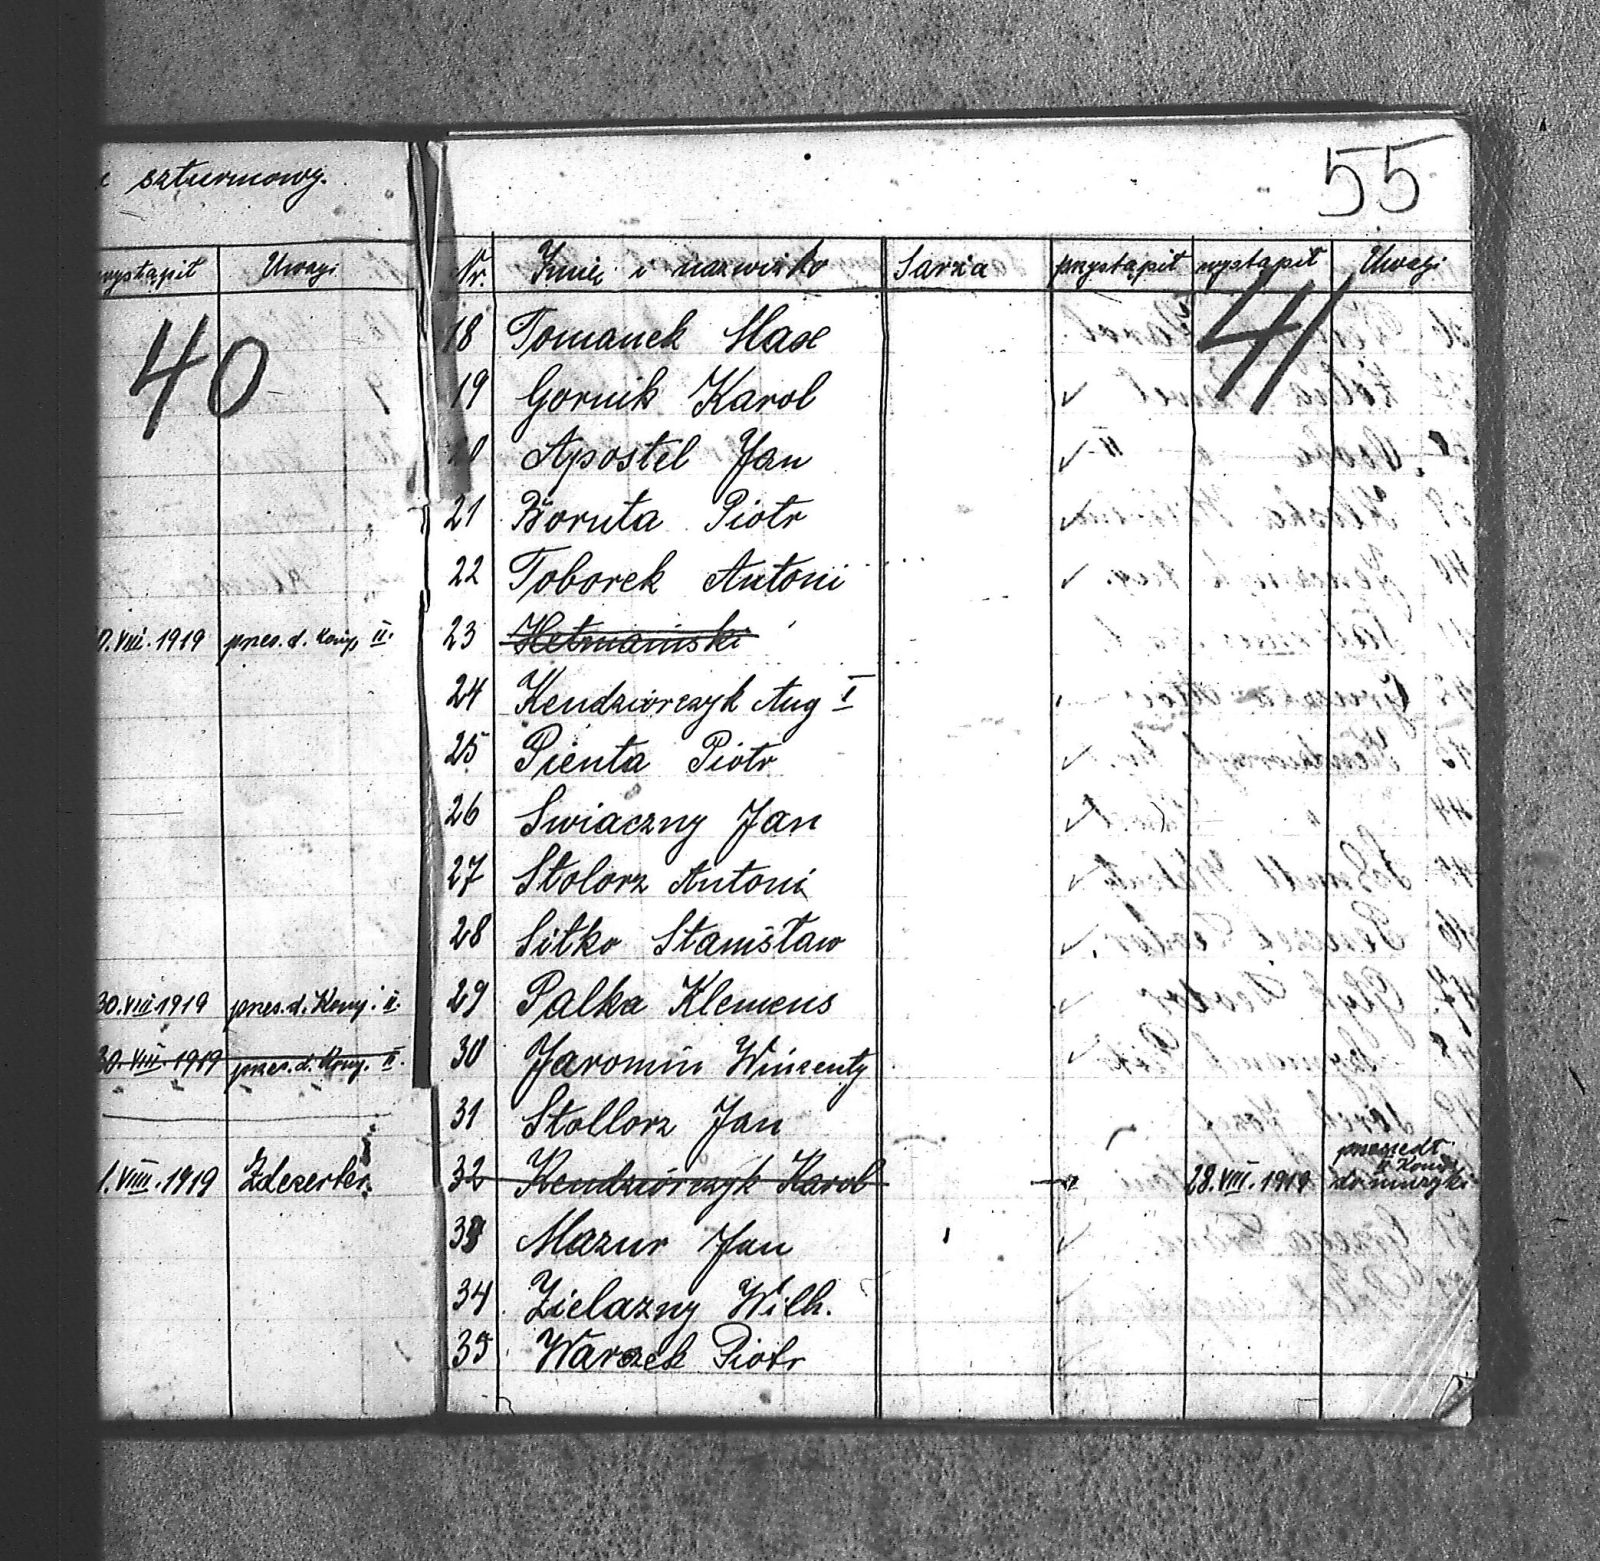 szturmowy.
wystąpił Uwagi
40
VIII. 1919 przes. d. Komp. II.
30. VIII 1919 przes. d. Komp. II.
30. VIII. 1919 przes. d. Komp. II.
1. VIII. 1919 Zdezerter.
55
Nr. Imię i nazwisko Sarża przystąpił wystąpił Uwagi
41
18 Tomanek Max
19 Gornik Karol
20 Apostel Jan
21 Boruta Piotr
22 Toborek Antoni
23 Hetmański
24 Kendziorczyk Aug I
25 Pienta Piotr
26 Swiaczny Jan
27 Stolorz Antoni
28 Sitko Stanisław
29 Palka Klemens
30 Jaromin Winzenty
31 Stollorz Jan
32 Kendziorczyk Karol 28. VIII. 1919 przszedł II Komp. do muzyki
33 Mazur Jan
34 Zielazny Wilh.
35 Warzek Piotr